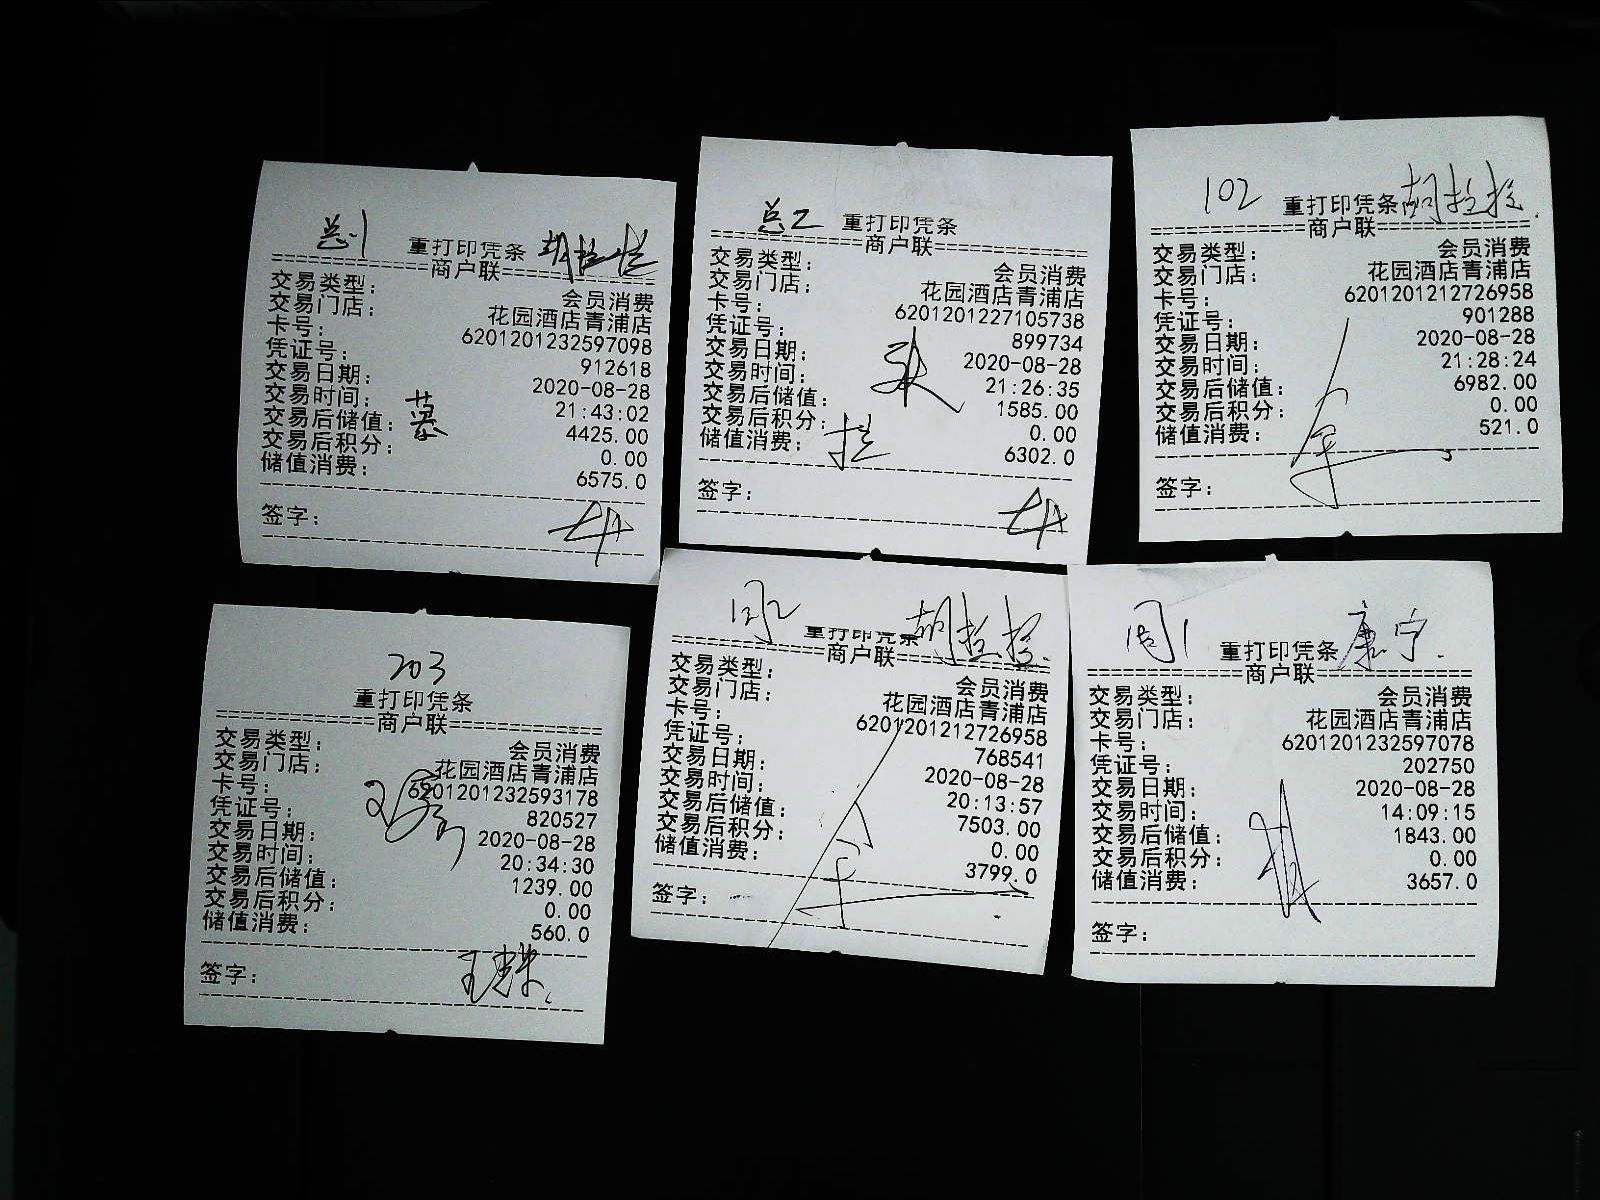 总1
重打印凭条 胡拉拉
商户联
交易类型： 会员消费
交易门店： 花园酒店青浦店
卡号： 6201201232597098
凭证号： 912618
交易日期： 2020-08-28
交易时间： 21:43:02
交易后储值： 4425.00
交易后积分： 0.00
储值消费： 6575.0
签字：
总2
重打印凭条
商户联
交易类型： 会员消费
交易门店： 花园酒店青浦店
卡号： 6201201227105738
凭证号： 899734
交易日期： 2020-08-28
交易时间： 21:26:35
交易后储值： 1585.00
交易后积分： 0.00
储值消费： 6302.0
签字：
102
重打印凭条 胡拉拉
商户联
交易类型： 会员消费
交易门店： 花园酒店青浦店
卡号： 6201201212726958
凭证号： 901288
交易日期： 2020-08-28
交易时间： 21:28:24
交易后储值： 6982.00
交易后积分： 0.00
储值消费： 521.0
签字：
203
重打印凭条
商户联
交易类型： 会员消费
交易门店： 花园酒店青浦店
卡号： 6201201232593178
凭证号： 820527
交易日期： 2020-08-28
交易时间： 20:34:30
交易后储值： 1239.00
交易后积分： 0.00
储值消费： 560.0
签字：
重打印凭条 胡拉拉
商户联
交易类型： 会员消费
交易门店： 花园酒店青浦店
卡号： 6201201212726958
凭证号： 768541
交易日期： 2020-08-28
交易时间： 20:13:57
交易后储值： 7503.00
交易后积分： 0.00
储值消费： 3799.0
签字：
重打印凭条 康宁
商户联
交易类型： 会员消费
交易门店： 花园酒店青浦店
卡号： 6201201232597078
凭证号： 202750
交易日期： 2020-08-28
交易时间： 14:09:15
交易后储值： 1843.00
交易后积分： 0.00
储值消费： 3657.0
签字：